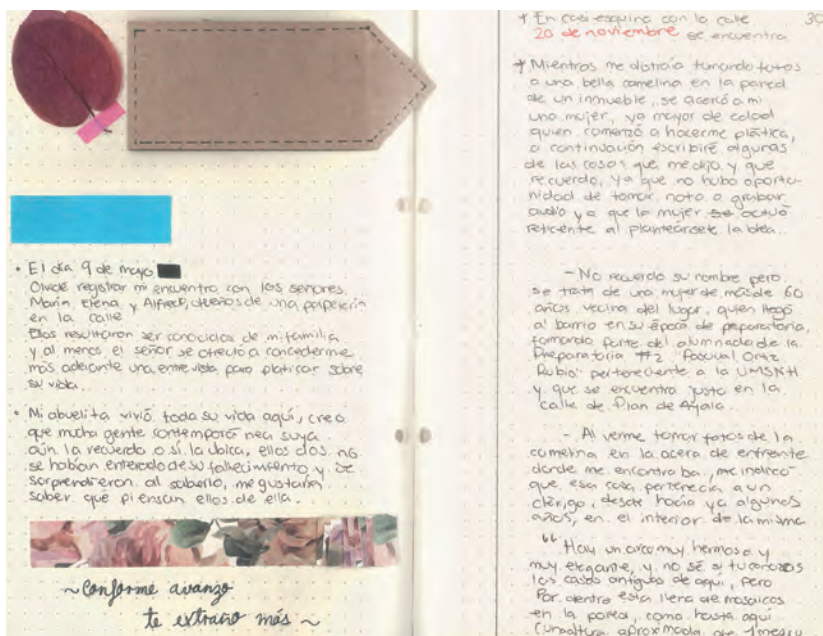 • El día 9 de mayo
Olvidé registrar mi encuentro con los señores
María Elena y Alfredo, dueños de una papelería
en la calle
Ellos resultaron ser conocidos de mi familia
y al menos el señor se ofreció a concederme
más adelante una entrevista para platicar sobre
su vida.
• Mi abuelita vivió toda su vida aquí, creo
que mucha gente contemporánea suya
aún la recuerda o sí la ubica, ellos dos no
se habían enterado de su fallecimiento y se
sorprendieron al saberlo, me gustaría
saber qué piensan ellos de ella.
~ Conforme avanzo
te extraño más ~
30
+ En casi esquina con la calle
20 de noviembre se encuentra
+ Mientras me distraía tomando fotos
a una bella camelina en la pared
de un inmueble, se acercó a mi
una mujer, ya mayor de edad
quien comenzó a hacerme plática,
a continuación escribiré algunas
de las cosas que me dijo y que
recuerdo, ya que no hubo oportu-
nidad de tomar nota o grabar
audio ya que la mujer se actuó
reticente al planteársele la idea.
- No recuerdo su nombre pero
se trata de una mujer de más de 60
años vecina del lugar, quien llegó
al barrio en su época de preparatoria,
formando parte del alumnado de la
Preparatoria #2 "Pascual Ortiz
Rubio" perteneciente a la UMSNH
y que se encuentra justo en la
calle de Plan de Ayala.
- Al verme tomar fotos de la
camelina en la acera de enfrente
donde me encontraba, me indicó
que esa casa pertenecía a un
clérigo, desde hacía ya algunos
años, en el interior de la misma
"Hay un arco muy hermoso y
muy elegante, y no sé si tu conoces
las casas antiguas de aquí, pero
Por dentro esta llena de mosaicos
en la pared, como hasta aquí
(una altura aproximada de 1 metro